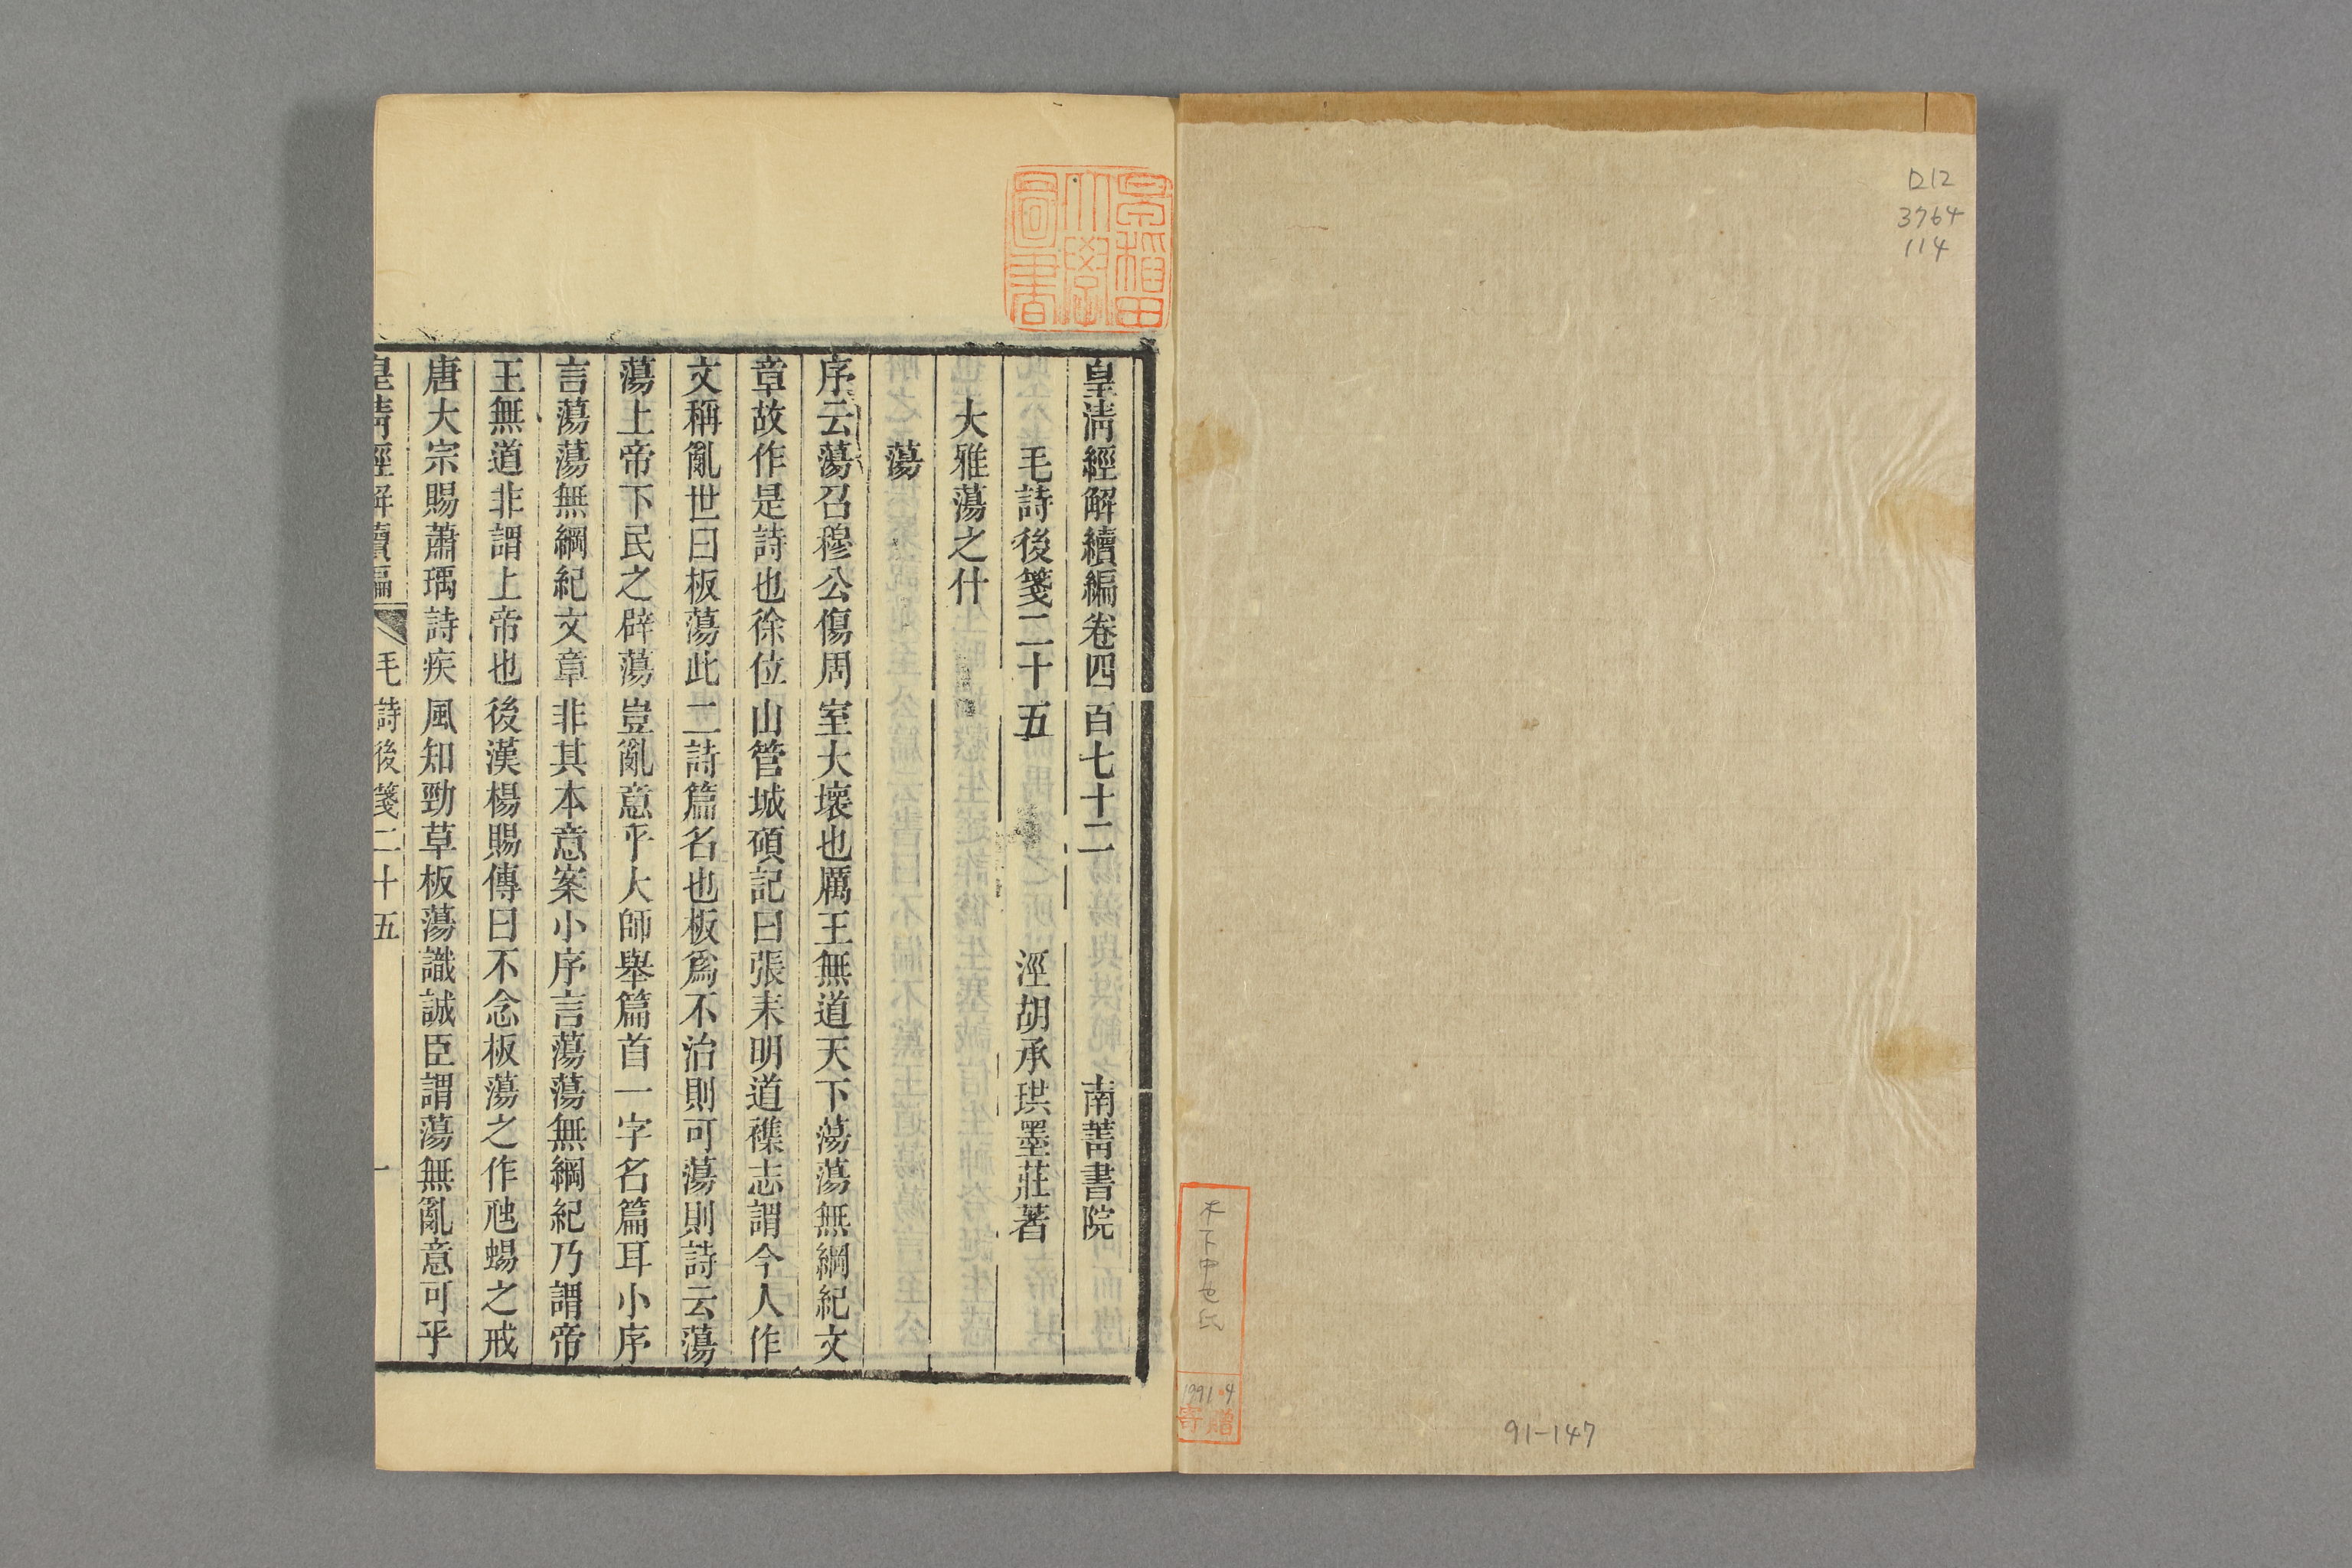 D12
3764
114
木下中也氏
1991.4
寄贈
91-147
早稲田
大學
圖書
皇清經解續編卷四百七十二　南菁書院
毛詩後箋二十五　涇胡承珙墨莊著
大雅蕩之什
蕩
序云蕩召穆公傷周室大壞也厲王無道天下蕩蕩無綱紀文
章故作是詩也徐位山管城碩記曰張耒明道襍志謂今人作
文稱亂世曰板蕩此二詩篇名也板爲不治則可蕩則詩云蕩
蕩上帝下民之辟蕩豈亂意乎大師舉篇首一字名篇耳小序
言蕩蕩無綱紀文章非其本意案小序言蕩蕩無綱紀乃謂帝
王無道非謂上帝也後漢楊賜傳曰不念板蕩之作虺蜴之戒
唐大宗賜蕭瑀詩疾風知勁草板蕩識誠臣謂蕩無亂意可乎
皇清經解續編　毛詩後箋二十五　一